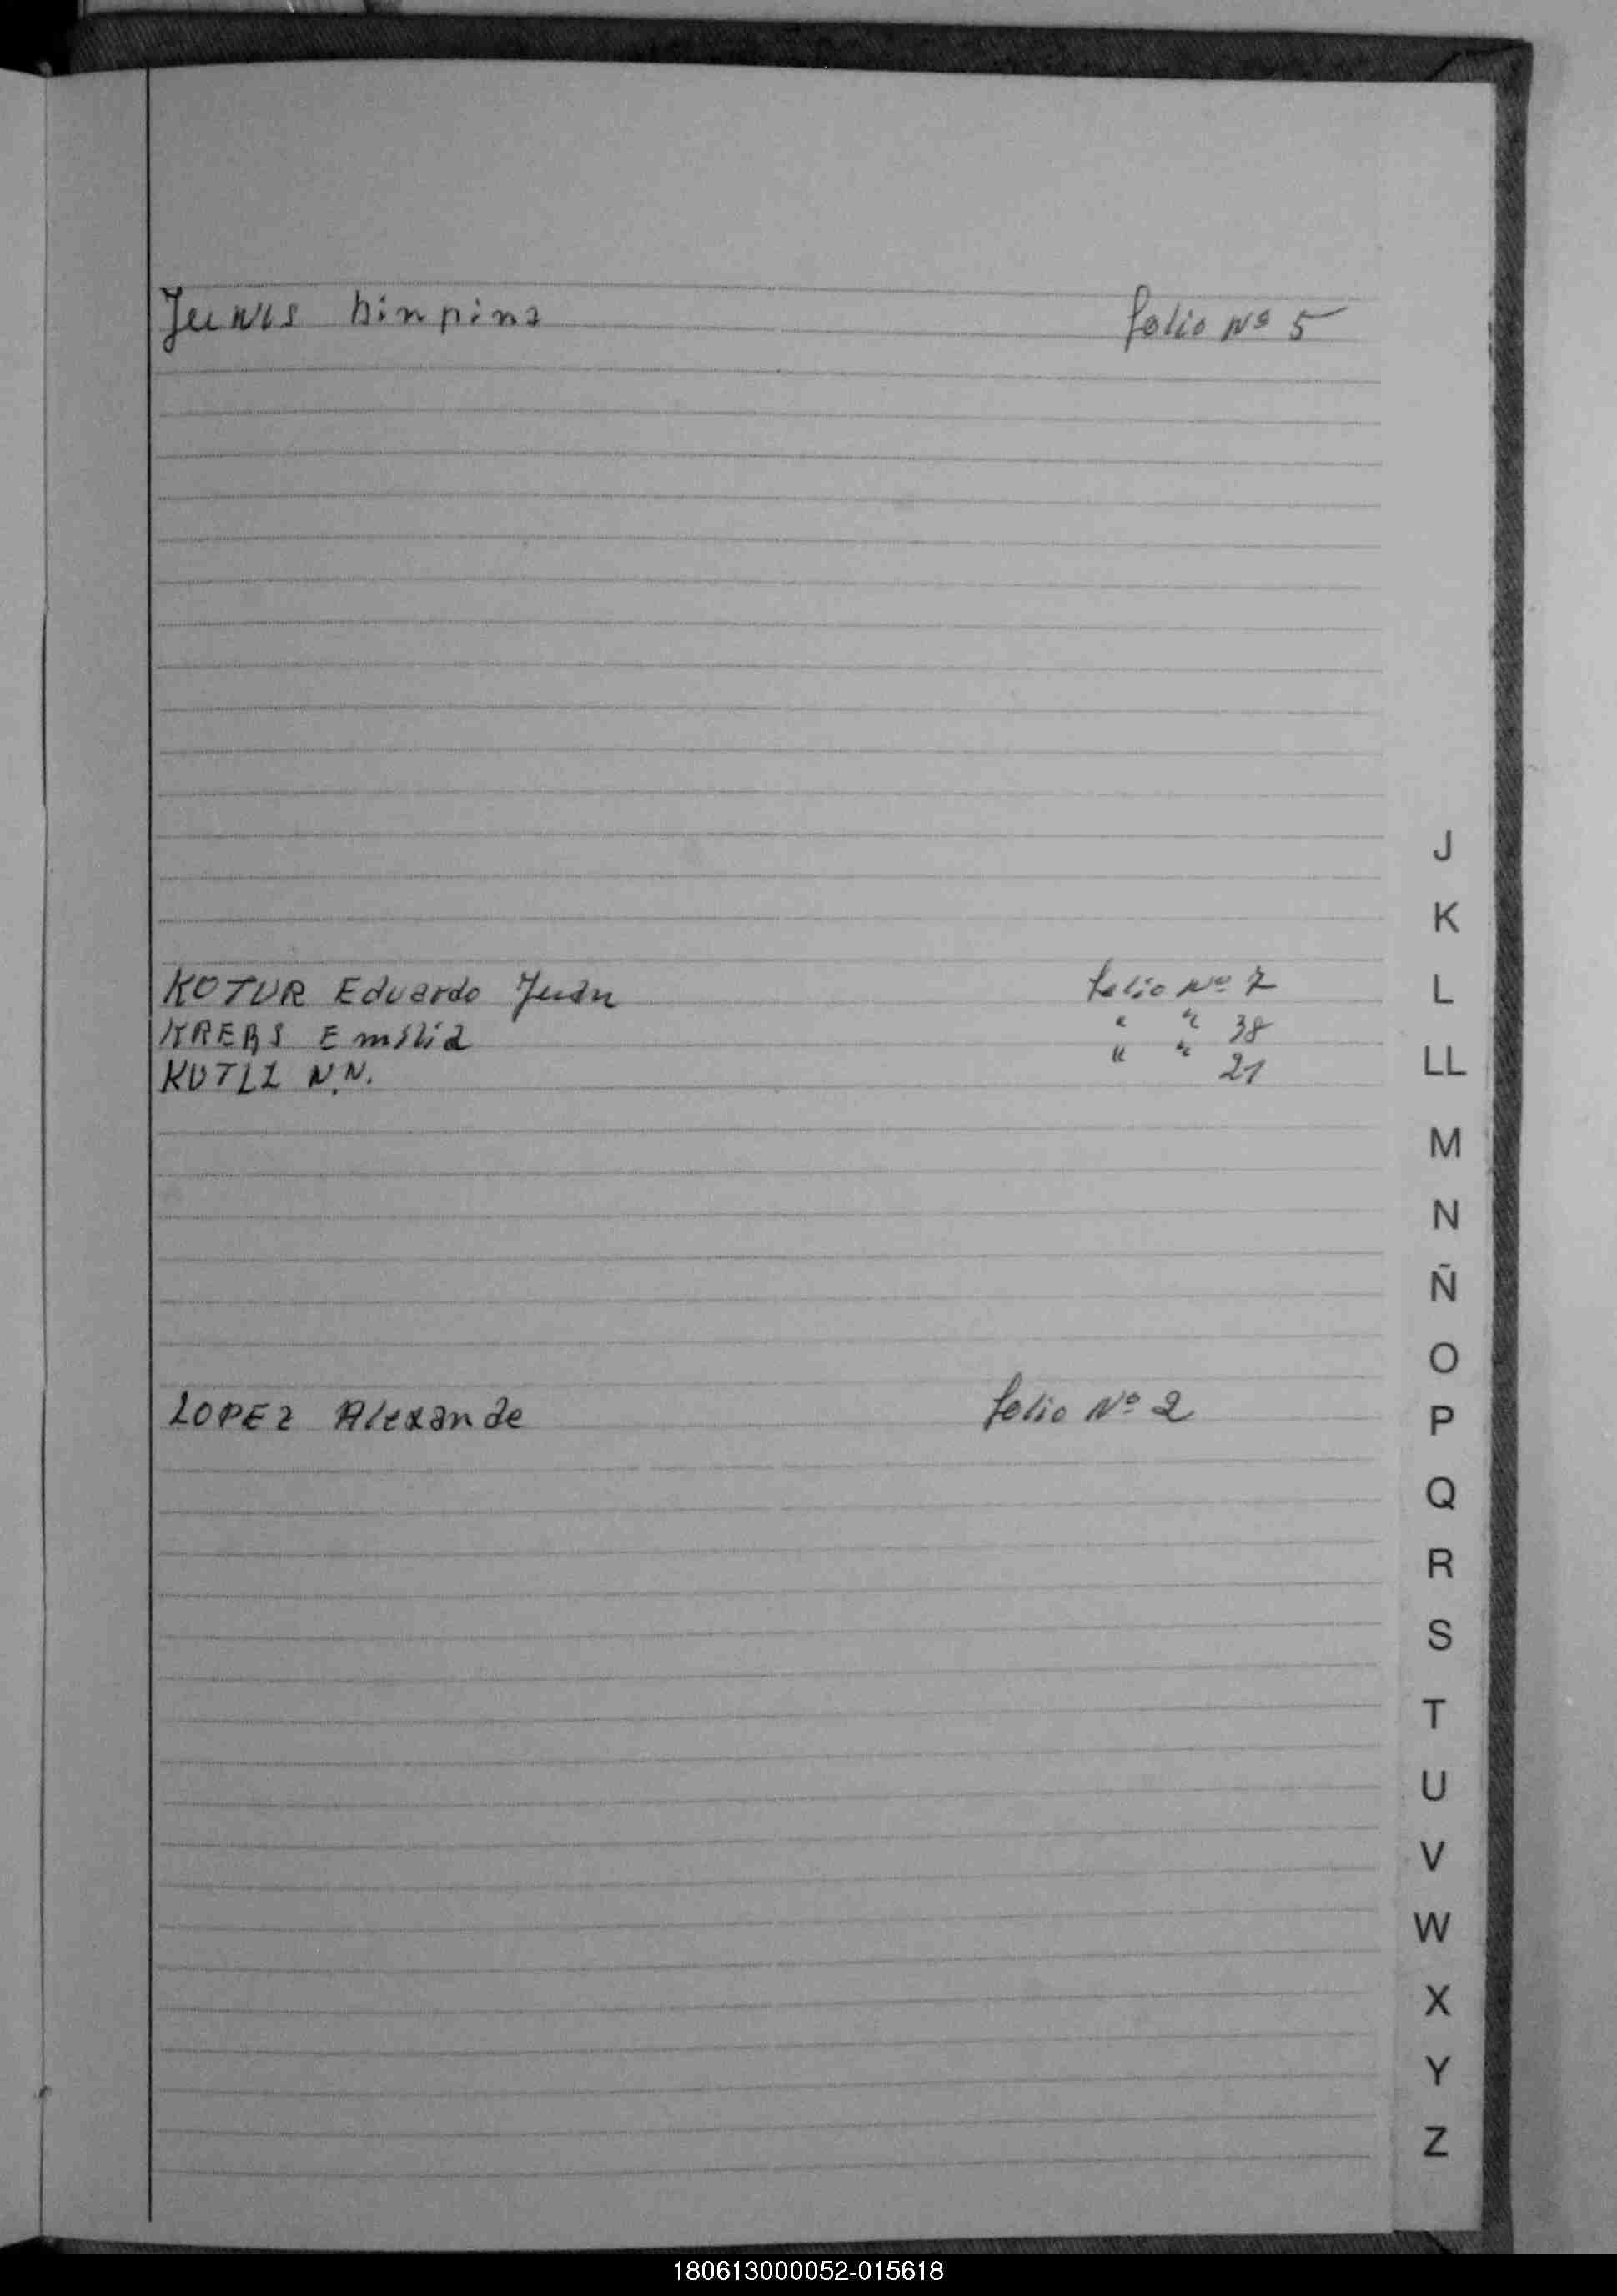 Junis folio Nº 5
KOTUR Eduardo Juan folio Nº 7
KREBS Emilia " " 38
KUTLI N.N. " " 21
LOPEZ Alexande folio Nº 2
J
K
L
LL
M
N
Ñ
O
P
Q
R
S
T
U
V
W
X
Y
Z
180613000052-015618